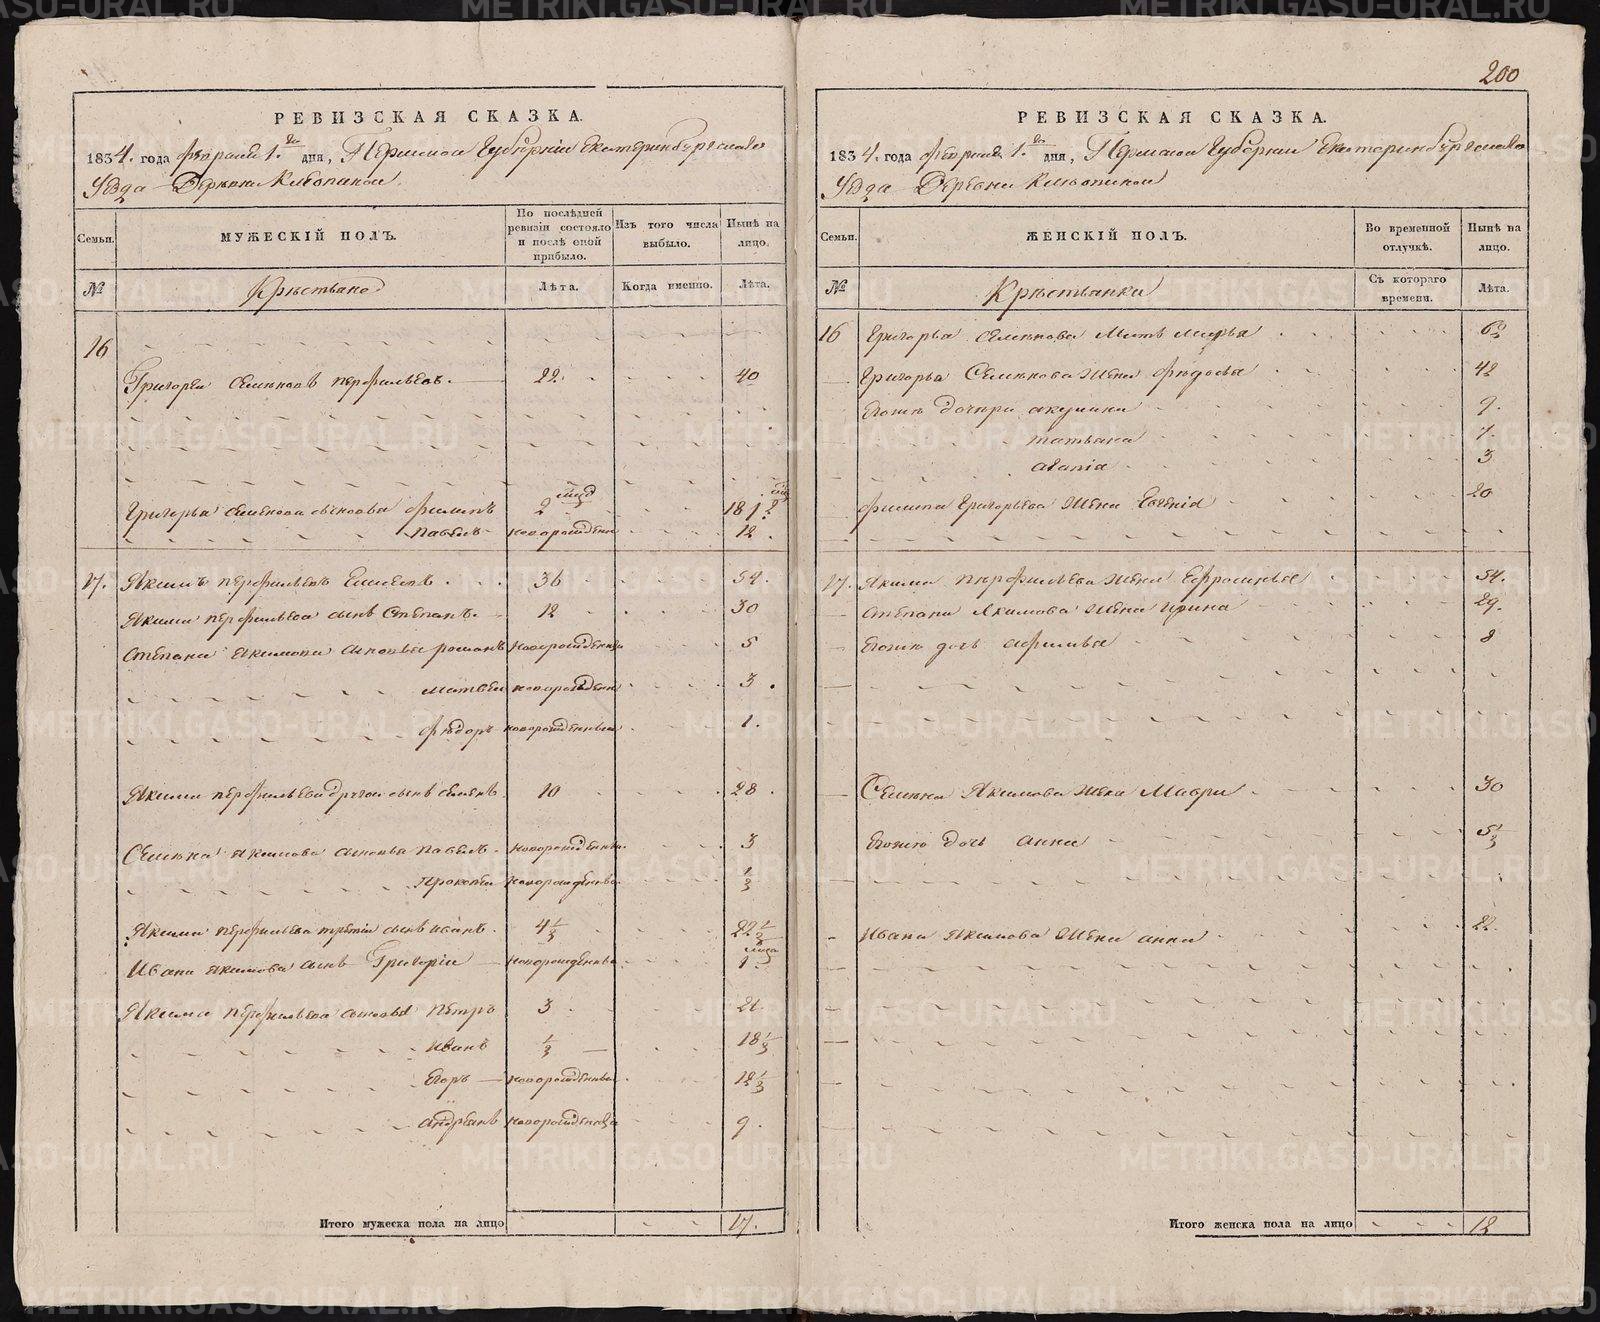 200
РЕВИЗСКАЯ СКАЗКА.
1834. года февраля 1.го дня, Пермской Губернии Екатеринбургскаго
Уезда Деревни Клюопиной
Семьи. МУЖЕСКІЙ ПОЛЪ. По послѣдней ревизіи состояло и послѣ оной прибыло. Изъ того числа выбыло. Нынѣ на лицо.
№ Крѣстьяне Лѣта. Когда именно. Лѣта.
16
Григорей Семеновъ перфильевъ. 22. 40
Григорья Семенова сыновья Филипъ 2 18 1/2
Павелъ новорожден 12.
17. Якимъ перфильевъ 36 54.
Якима перфильева сынъ Степанъ. 12 30
Степана Якимова сыновья романъ новорожденны 5
Матвей новорожден 3.
Фѣдоръ новорожденные 1.
Якима перфильева другой сынъ семенъ. 10 28.
Семена якимова сыновья павелъ. новорожденны. 3
Прокопей новорожденны 1/3
Якима перфильева третіи сынъ иванъ. 4 1/3 22 1/3
Ивана якимова сынъ Григоріи новорожденны. 1.
Якима перфильева сыновья Пѣтръ 3 21.
Иванъ 1/3 18 1/3
Егоръ новорожденны. 12 1/3
андреанъ новорожденны 9.
Итого мужеска пола на лицо 17.
РЕВИЗСКАЯ СКАЗКА.
1834. года февраля 1.го дня, Пермской Губернии Екатеринбургскаго
Уезда Деревни Клюопиной
Семьи. ЖЕНСКІЙ ПОЛЪ. Во временной отлучкѣ. Нынѣ на лицо.
№ Крѣстьянки Съ котораго времени. Лѣта.
16 Григорья Семенова Мать Марья
Григорья Семенова Жена Федосья 42
Егожъ дочери акулина 9.
татьяна 7.
3
Филипа Григорьева Жена Евгенія 20
17. Якима Перфильева Жена Ефросинья 54.
Степана Якимова Жена ирина 29.
Егожъ дочь афимья 8
Семена Якимова жена Мавра 30
Егожъ дочь анна 5 1/3
Ивана Якимова Жена анна 22.
Итого женска пола на лицо 12
METRIKI.GASO-URAL.RU